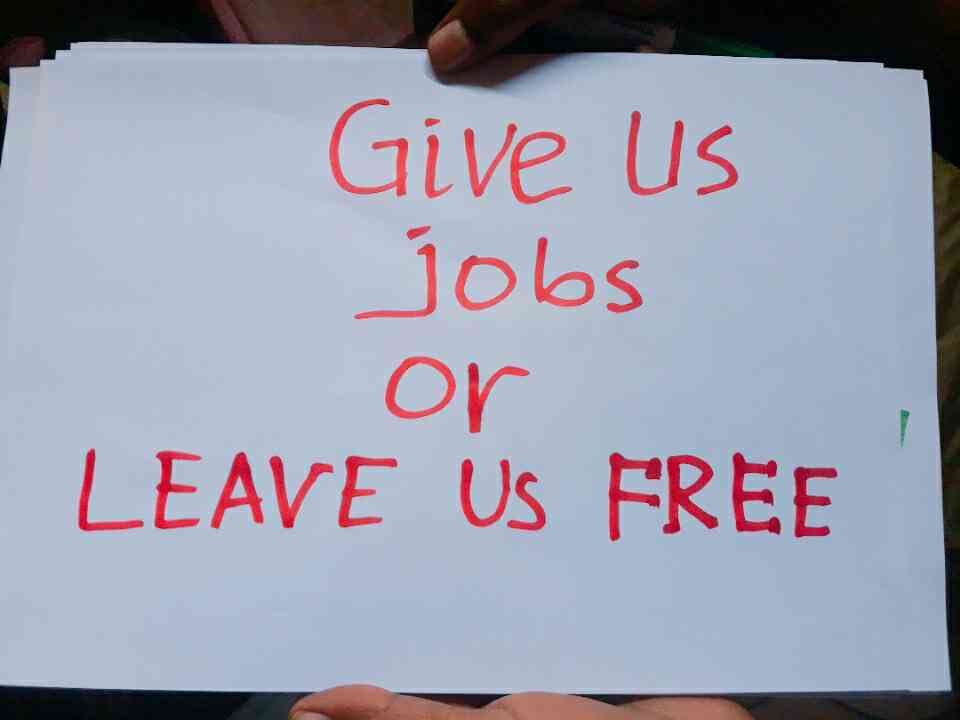 Give Us
jobs
or
LEAVE Us FREE